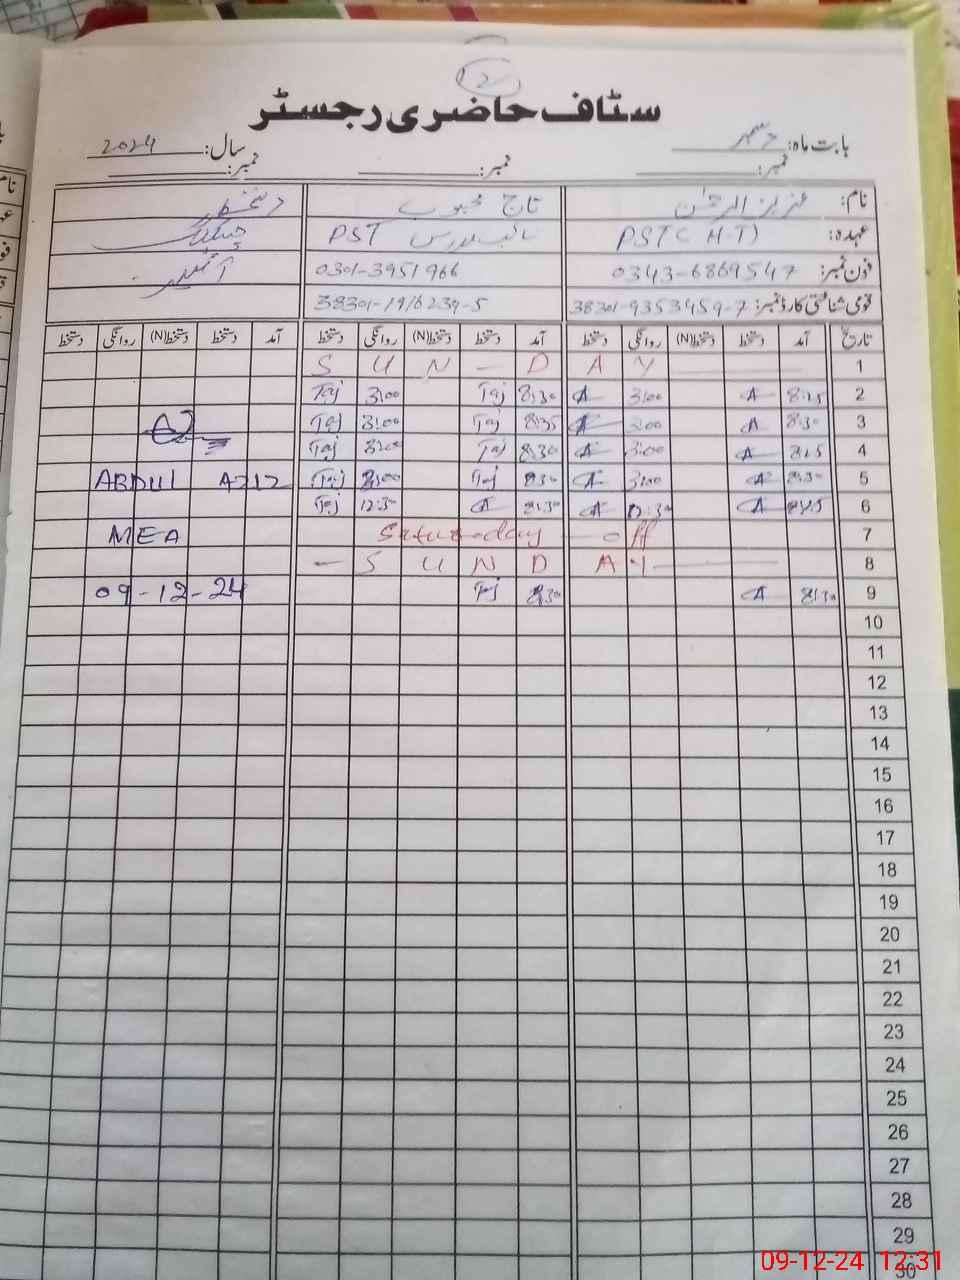 2
سٹاف حاضری رجسٹر
بابت ماہ: دسمبر سال: 2024
نمبر: نمبر: نمبر:
نام: عزیز الرحمٰن تاج محبوب دستخط
عہدہ: PST (H.T) PST نائب مدرس چیکنگ
فون نمبر: 0343-6869547 0301-3951966 آفیسر
قومی شناختی کارڈ نمبر: 38301-9353459-7 38301-1916239-5
تاریخ آمد دستخط دستخط(N) روانگی دستخط آمد دستخط دستخط(N) روانگی دستخط آمد دستخط دستخط(N) روانگی دستخط
S U N - D A Y 1
Taj 3:00 Taj 8:30 A 3:00 A 8:15 2
Taj 3:00 Taj 8:35 A 3:00 A 8:30 3
Taj 3:00 Taj 8:30 A 3:00 A 8:15 4
ABDUL AZIZ Taj 3:00 Taj 8:30 A 3:00 A 8:30 5
Taj 12:30 A 8:30 A 12:30 A 8:15 6
MEA Saturday - off 7
- S U N D A Y 8
09-12-24 Taj 8:30 A 8:30 9
10
11
12
13
14
15
16
17
18
19
20
21
22
23
24
25
26
27
28
29
30
09-12-24 12:31